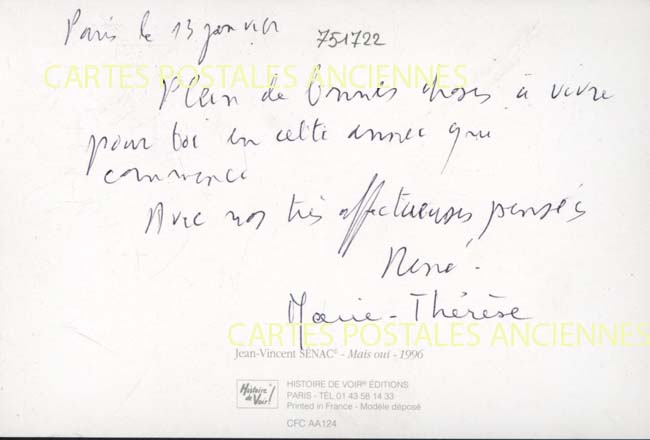 Paris le 13 janvier
751722
CARTES POSTALES ANCIENNES
Plein de bonnes choses à vivre
pour toi en cette année qui
commence
Avec nos très affectueuses pensées
René.
Marie-Thérèse
CARTES POSTALES ANCIENNES
Jean-Vincent SÉNAC - Mais oui - 1996
Histoire de Voir!
HISTOIRE DE VOIR® ÉDITIONS
PARIS - TÉL 01 43 58 14 33
Printed in France - Modèle déposé
CFC AA124